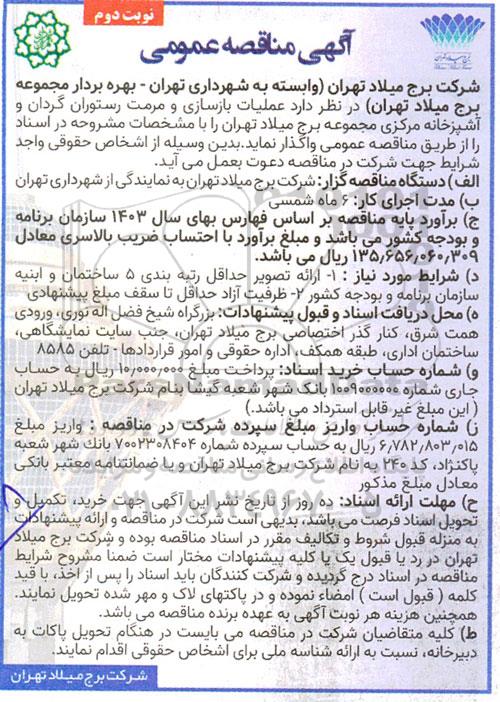 نوبت دوم
آگهی مناقصه عمومی
شرکت برج میلاد تهران (وابسته به شهرداری تهران - بهره بردار مجموعه
برج میلاد تهران) در نظر دارد عملیات بازسازی و مرمت رستوران گردان و
آشپزخانه مرکزی مجموعه برج میلاد تهران را با مشخصات مشروحه در اسناد
را از طریق مناقصه عمومی واگذار نماید.بدین وسیله از اشخاص حقوقی واجد
شرایط جهت شرکت در مناقصه دعوت بعمل می آید.
الف) دستگاه مناقصه گزار: شرکت برج میلاد تهران به نمایندگی از شهرداری تهران
ب) مدت اجرای کار: ۶ ماه شمسی
ج) برآورد پایه مناقصه بر اساس فهارس بهای سال ۱۴۰۳ سازمان برنامه
و بودجه کشور می باشد و مبلغ برآورد با احتساب ضریب بالاسری معادل
۱۳۵,۶۵۶,۰۶۰,۳۰۹ ریال می باشد.
د) شرایط مورد نیاز : ۱- ارائه تصویر حداقل رتبه بندی ۵ ساختمان و ابنیه
سازمان برنامه و بودجه کشور ۲- ظرفیت آزاد حداقل تا سقف مبلغ پیشنهادی
ه) محل دریافت اسناد و قبول پیشنهادات: بزرگراه شیخ فضل اله نوری، ورودی
همت شرق، کنار گذر اختصاصی برج میلاد تهران، جنب سایت نمایشگاهی،
ساختمان اداری، طبقه همکف، اداره حقوقی و امور قراردادها - تلفن ۸۵۸۵
و) شماره حساب خرید اسناد: پرداخت مبلغ ۱۰,۰۰۰,۰۰۰ ریال به حساب
جاری شماره ۱۰۰۹۰۰۰۰۰۰ بانک شهر شعبه گیشا بنام شرکت برج میلاد تهران
( این مبلغ غیر قابل استرداد می باشد.)
ز) شماره حساب واریز مبلغ سپرده شرکت در مناقصه : واریز مبلغ
۶,۷۸۲,۸۰۳,۰۱۵ ریال به حساب سپرده شماره ۷۰۰۲۳۰۸۴۰۴ بانك شهر شعبه
پاکنژاد، کد ۲۴۰ به نام شرکت برج میلاد تهران و یا ضمانتنامه معتبر بانکی
معادل مبلغ مذکور
ح) مهلت ارائه اسناد: ده روز از تاریخ نشر این آگهی جهت خرید، تکمیل و
تحویل اسناد فرصت می باشد، بدیهی است شرکت در مناقصه و ارائه پیشنهادات
به منزله قبول شروط و تکالیف مقرر در اسناد مناقصه بوده و شرکت برج میلاد
تهران در رد یا قبول یک یا کلیه پیشنهادات مختار است ضمنا مشروح شرایط
مناقصه در اسناد درج گردیده و شرکت کنندگان باید اسناد را پس از اخذ، با قید
کلمه ( قبول است ) امضاء نموده و در پاکتهای لاک و مهر شده تحویل نمایند.
همچنین هزینه هر نوبت آگهی به عهده برنده مناقصه می باشد.
ط) کلیه متقاضیان شرکت در مناقصه می بایست در هنگام تحویل پاکات به
دبیرخانه، نسبت به ارائه شناسه ملی برای اشخاص حقوقی اقدام نمایند.
شرکت برج میلاد تهران